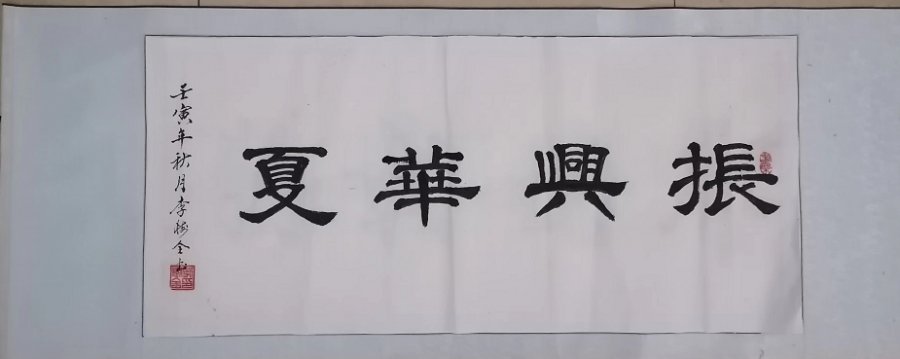 振興華夏
壬寅年秋月李